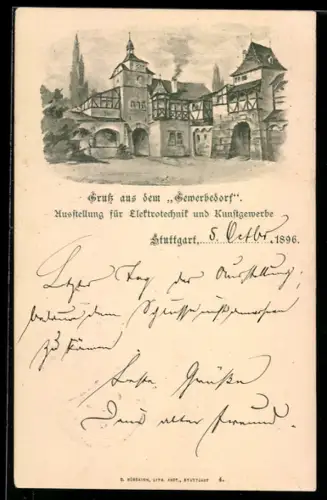 Gruß aus dem „Gewerbedorf".
Ausstellung für Elektrotechnik und Kunstgewerbe
Stuttgart, 5. Octbr. 1896.
Letzter Tag der Ausstellung,
dem
zu können
Beste Grüße
Dein alter Freund.
LITH. ANST., STUTTGART 4.